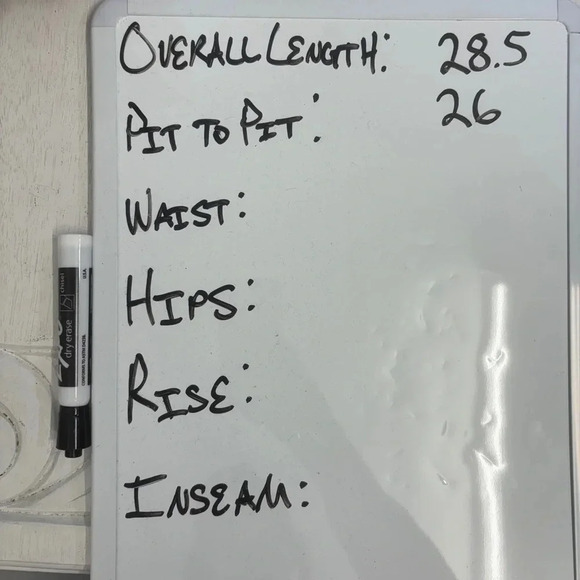 OVERALL LENGTH: 28.5
PIT TO PIT: 26
WAIST:
HIPS:
RISE:
INSEAM:
dry erase